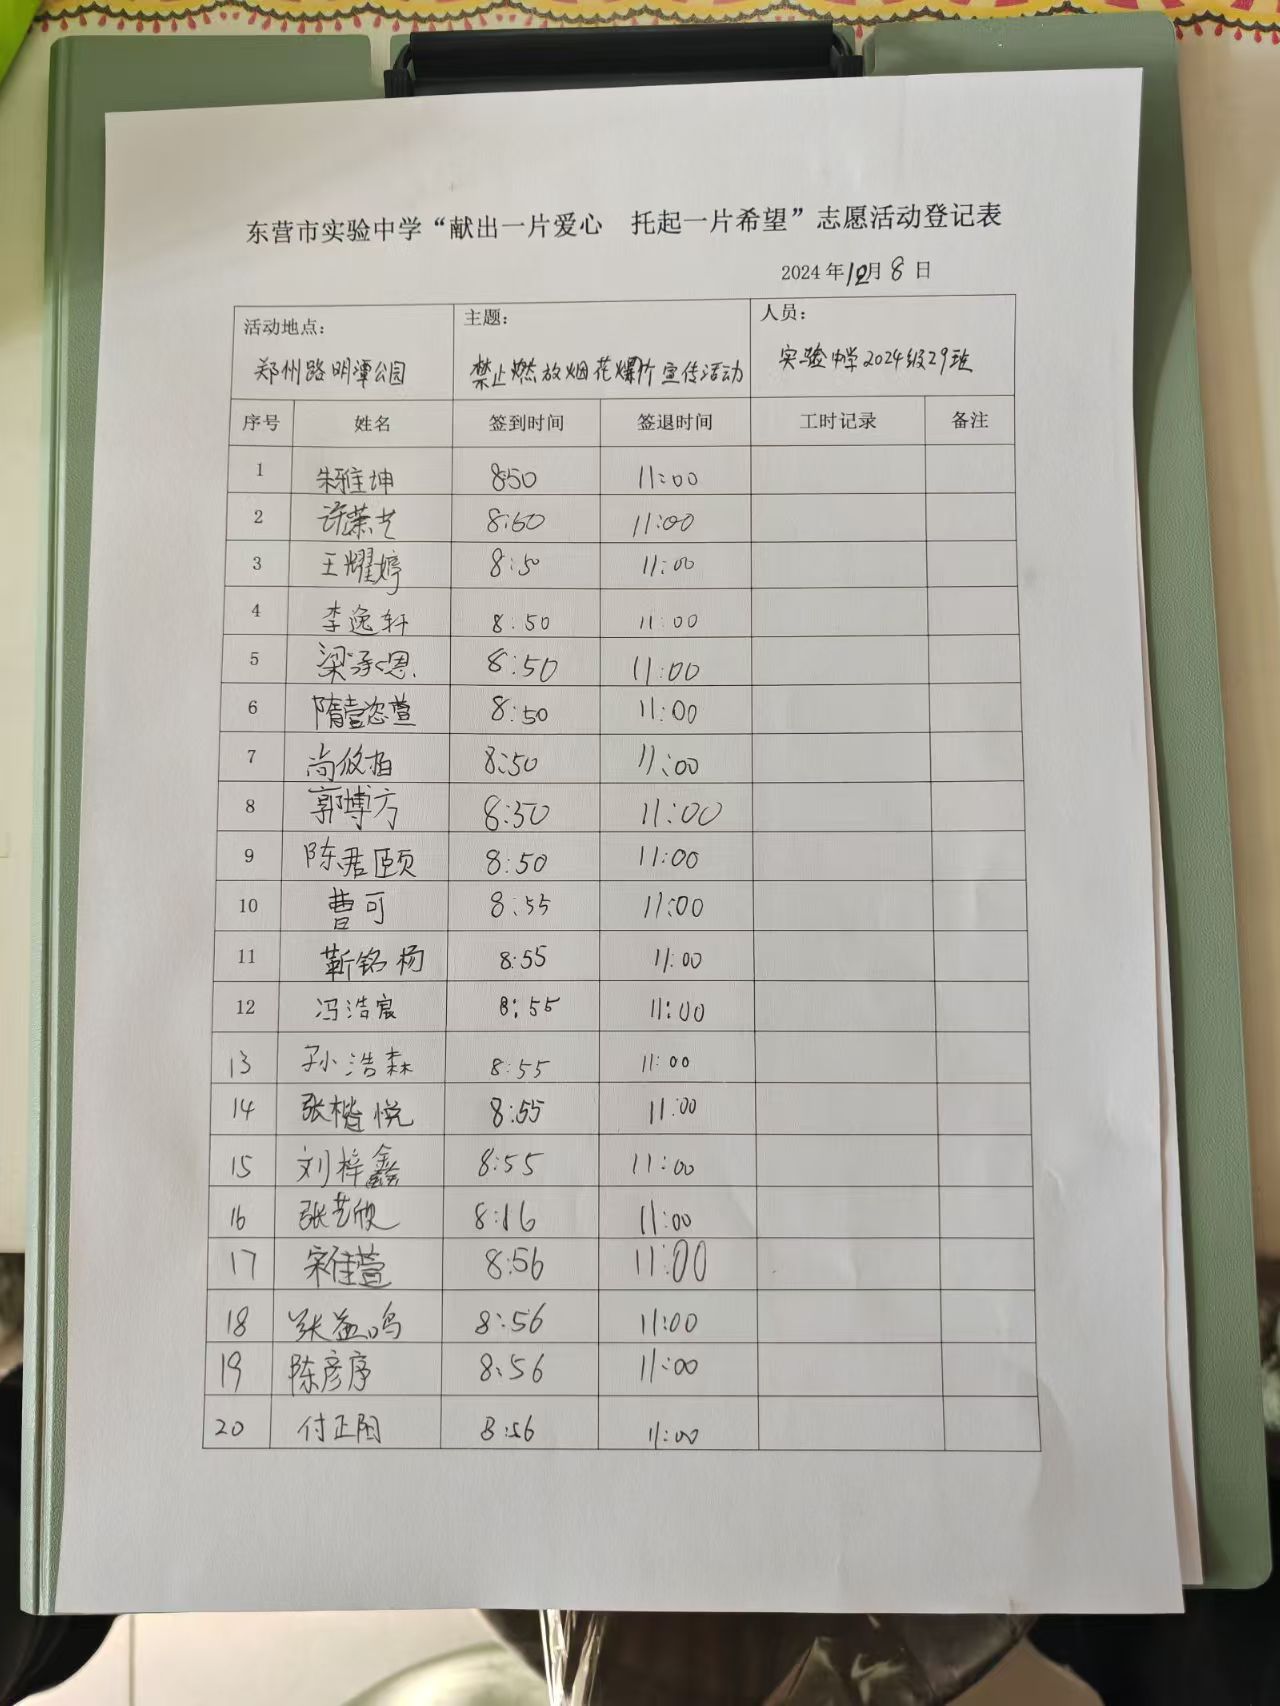 东营市实验中学“献出一片爱心 托起一片希望”志愿活动登记表
2024年12月8日
活动地点： 主题： 人员：
郑州路明潭公园 禁止燃放烟花爆竹宣传活动 实验中学2024级29班
序号 姓名 签到时间 签退时间 工时记录 备注
1 朱雅坤 8:50 11:00
2 许荣艺 8:50 11:00
3 王耀婷 8:50 11:00
4 李逸轩 8:50 11:00
5 梁承恩 8:50 11:00
6 隋壹恣萱 8:50 11:00
7 尚攸柏 8:50 11:00
8 郭博方 8:50 11:00
9 陈君颐 8:50 11:00
10 曹可 8:55 11:00
11 靳铭杨 8:55 11:00
12 冯浩宸 8:55 11:00
13 孙浩森 8:55 11:00
14 张楷悦 8:55 11:00
15 刘梓鑫 8:55 11:00
16 张艺欣 8:16 11:00
17 宋佳萱 8:56 11:00
18 张益鸣 8:56 11:00
19 陈彦序 8:56 11:00
20 付正阳 8:56 11:00